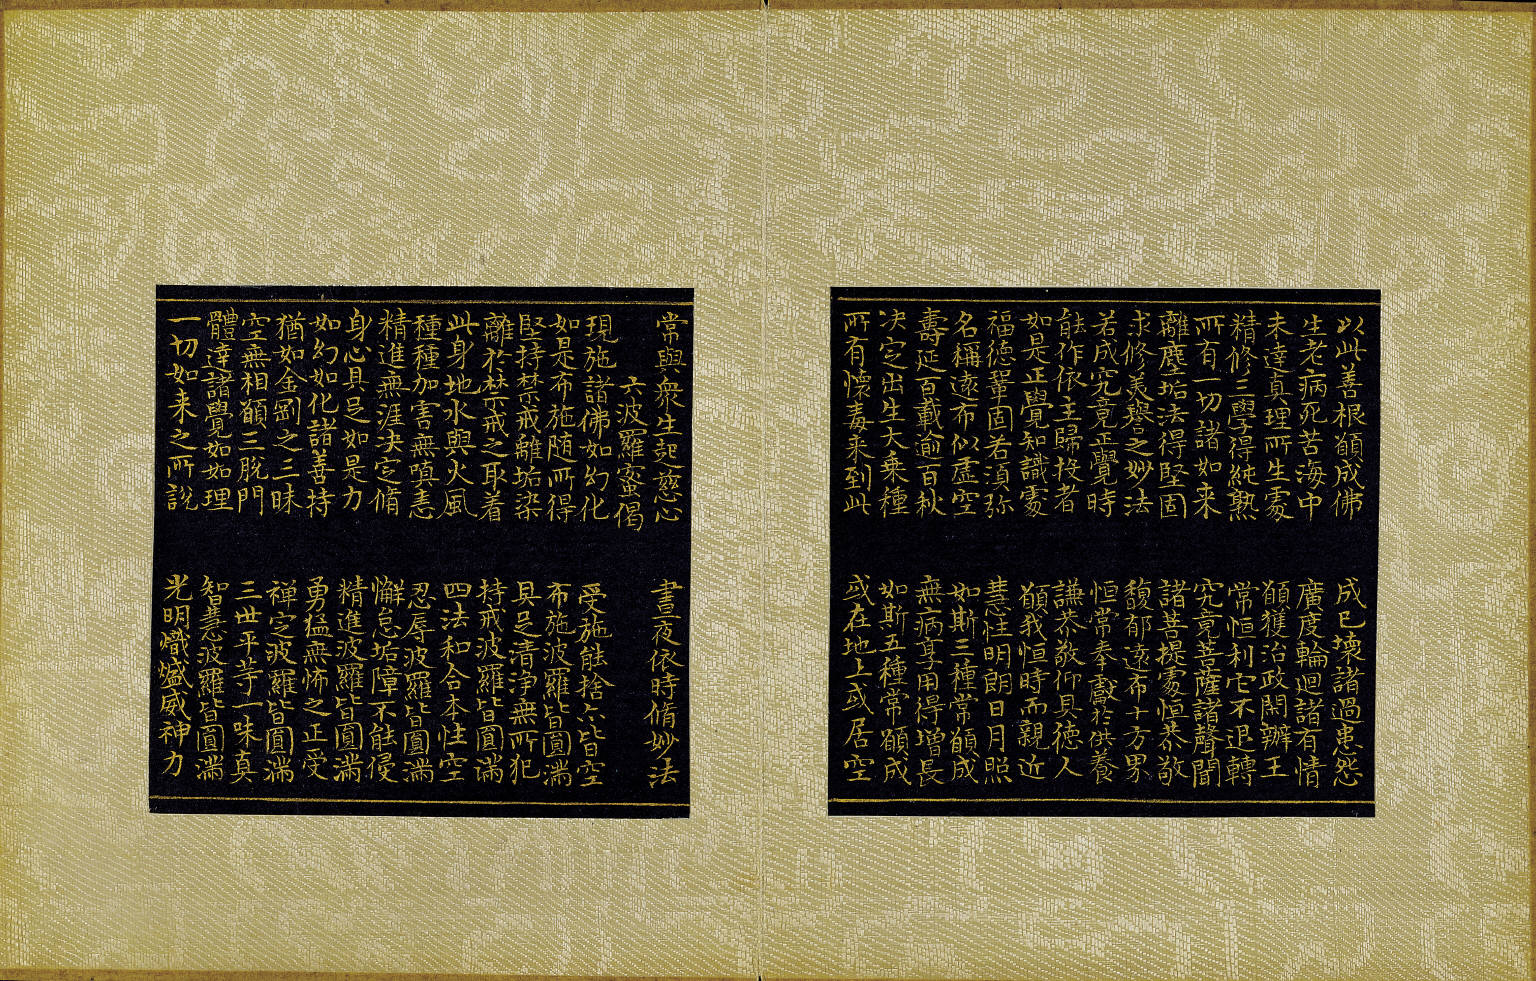 以此善根願成佛　成已壞諸過患怨
生老病死苦海中　廣度輪迴諸有情
未達真理所生處　願獲治政閑辦王
精修三學得純熟　常恒利它不退轉
所有一切諸如来　究竟菩薩諸聲聞
離塵垢法得堅固　諸菩提處恒恭敬
求修美譽之妙法　馥郁遠布十方界
若成究竟正覺時　恒常奉獻於供養
能作依主歸投者　謙恭敬仰具德人
如是正覺知識處　願我恒時而親近
福德鞏固若須弥　慧性明朗日月照
名稱遠布似虛空　如斯三種常願成
壽延百載逾百秋　無病享用得增長
决定出生大乘種　如斯五種常願成
所有懷毒来到此　或在地上或居空
常與衆生起慈心　晝夜依時脩妙法
六波羅蜜偈
現施諸佛如幻化　受施能捨亦皆空
如是布施随所得　布施波羅皆圓滿
堅持禁戒離垢染　具足清淨無所犯
離於禁戒之取着　持戒波羅皆圓滿
此身地水與火風　四法和合本性空
種種加害無嗔恚　忍辱波羅皆圓滿
精進無涯决定脩　懈怠垢障不能侵
身心具足如是力　精進波羅皆圓滿
如幻如化諸善持　勇猛無怖之正受
猶如金剛之三昧　禅定波羅皆圓滿
空無相願三脫門　三世平等一味真
體達諸覺如如理　智慧波羅皆圓滿
一切如来之所說　光明熾盛威神力